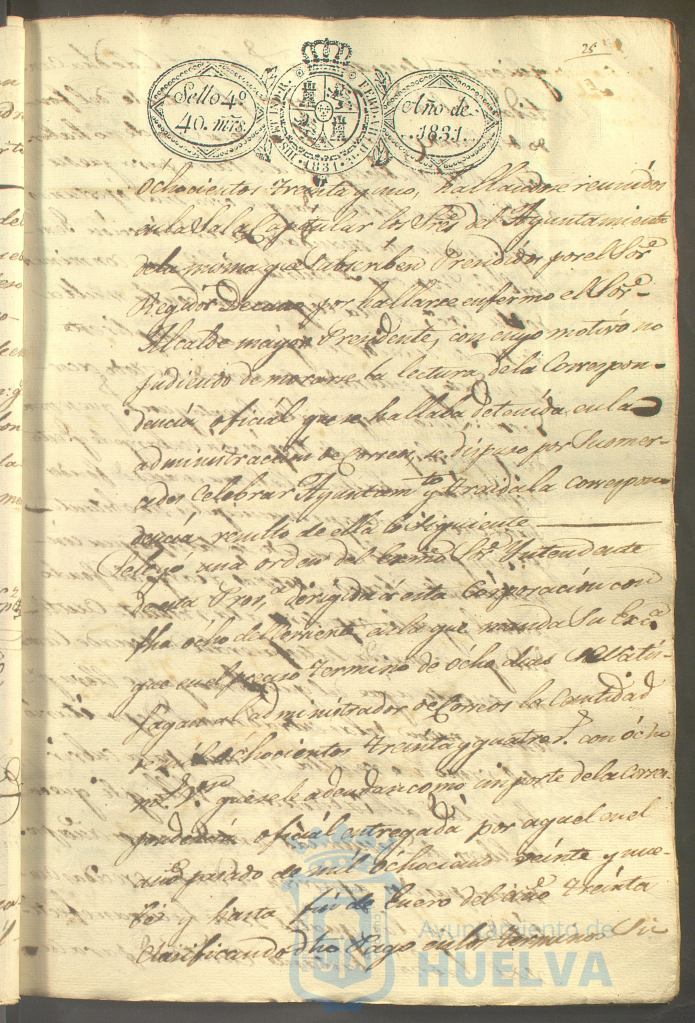 25
Sello 4º
40. mrs.
HISP. ET IND. R. FERD. VII D. G. 1831
Año de
1831.
ochocientos treinta y uno, hallandose reunidos
en la Sala Capitular los Sres. del Ayuntamiento
de la misma que subscriben Precedidos por el Sor.
Regidor Decano por hallarse enfermo el Sor.
Alcalde mayor Presidente, con cuyo motivo no
pudiendo demorarse la lectura de la Correspon-
dencia oficial que se hallaba detenida en la
administracion de correos, se dispuso por Su mer-
celebrar Ayuntamto. y traida la correspon
dencia resultó de ella lo siguiente
Se leyó una orden del Sr. Intendente
de esta Prova. dirigida á esta Corporacion con
fha ocho del corriente en la que manda Su Exca.
que en el preciso termino de ocho dias se satis-
fagan al administrador de Correos la Cantidad
de mil ochocientos treinta y quatro rs. con ocho
mrs. que se le adeudan como importe de la Corres-
pondencia oficial entregada por aquel en el
año pasado de mil ochocientos veinte y nue-
be y hasta fin de Enero del año treinta
dho Pago en los terminos
Ayuntamiento de
HUELVA